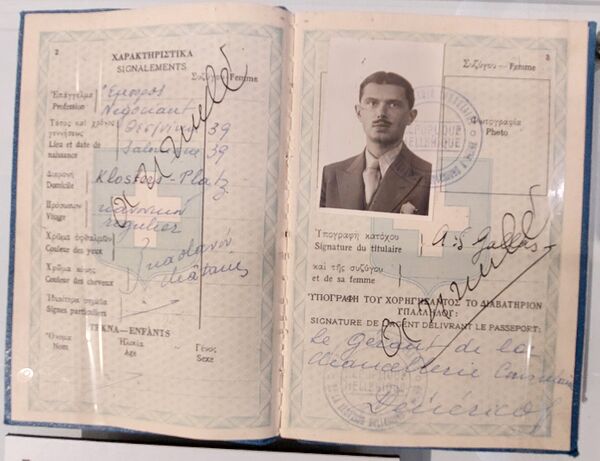 2
ΧΑΡΑΚΤΗΡΙΣΤΙΚΑ
SIGNALEMENTS
Συζύγου - Femme
Ἐπάγγελμα
Profession
Ἔμπορος
Négociant
Τόπος καὶ χρόνος
γεννήσεως
Lieu et date de
naissance
39
Salonique 39
Διαμονὴ
Domicile
Klosters-Platz
Πρόσωπον
Visage
κανονικόν
régulier
Χρῶμα ὀφθαλμῶν
Couleur des yeux
Χρῶμα κόμης
Couleur des cheveux
καστανόν
châtain
Ἰδιαίτερα σημεῖα
Signes particuliers
ΤΕΚΝΑ—ENFANTS
Ὄνομα
Nom
Ἡλικία
Age
Γένος
Sexe
annulé
3
Συζύγου - Femme
Φωτογραφία
Photo
REPUBLIQUE
HELLENIQUE
Ὑπογραφὴ κατόχου
Signature du titulaire
καὶ τῆς συζύγου
et de sa femme
annulé
ΥΠΟΓΡΑΦΗ ΤΟΥ ΧΟΡΗΓΗΣΑΝΤΟΣ ΤΟ ΔΙΑΒΑΤΗΡΙΟΝ
ΥΠΑΛΛΗΛΟΥ:
SIGNATURE DE L'AGENT DÉLIVRANT LE PASSEPORT:
Le gérant de la
chancellerie